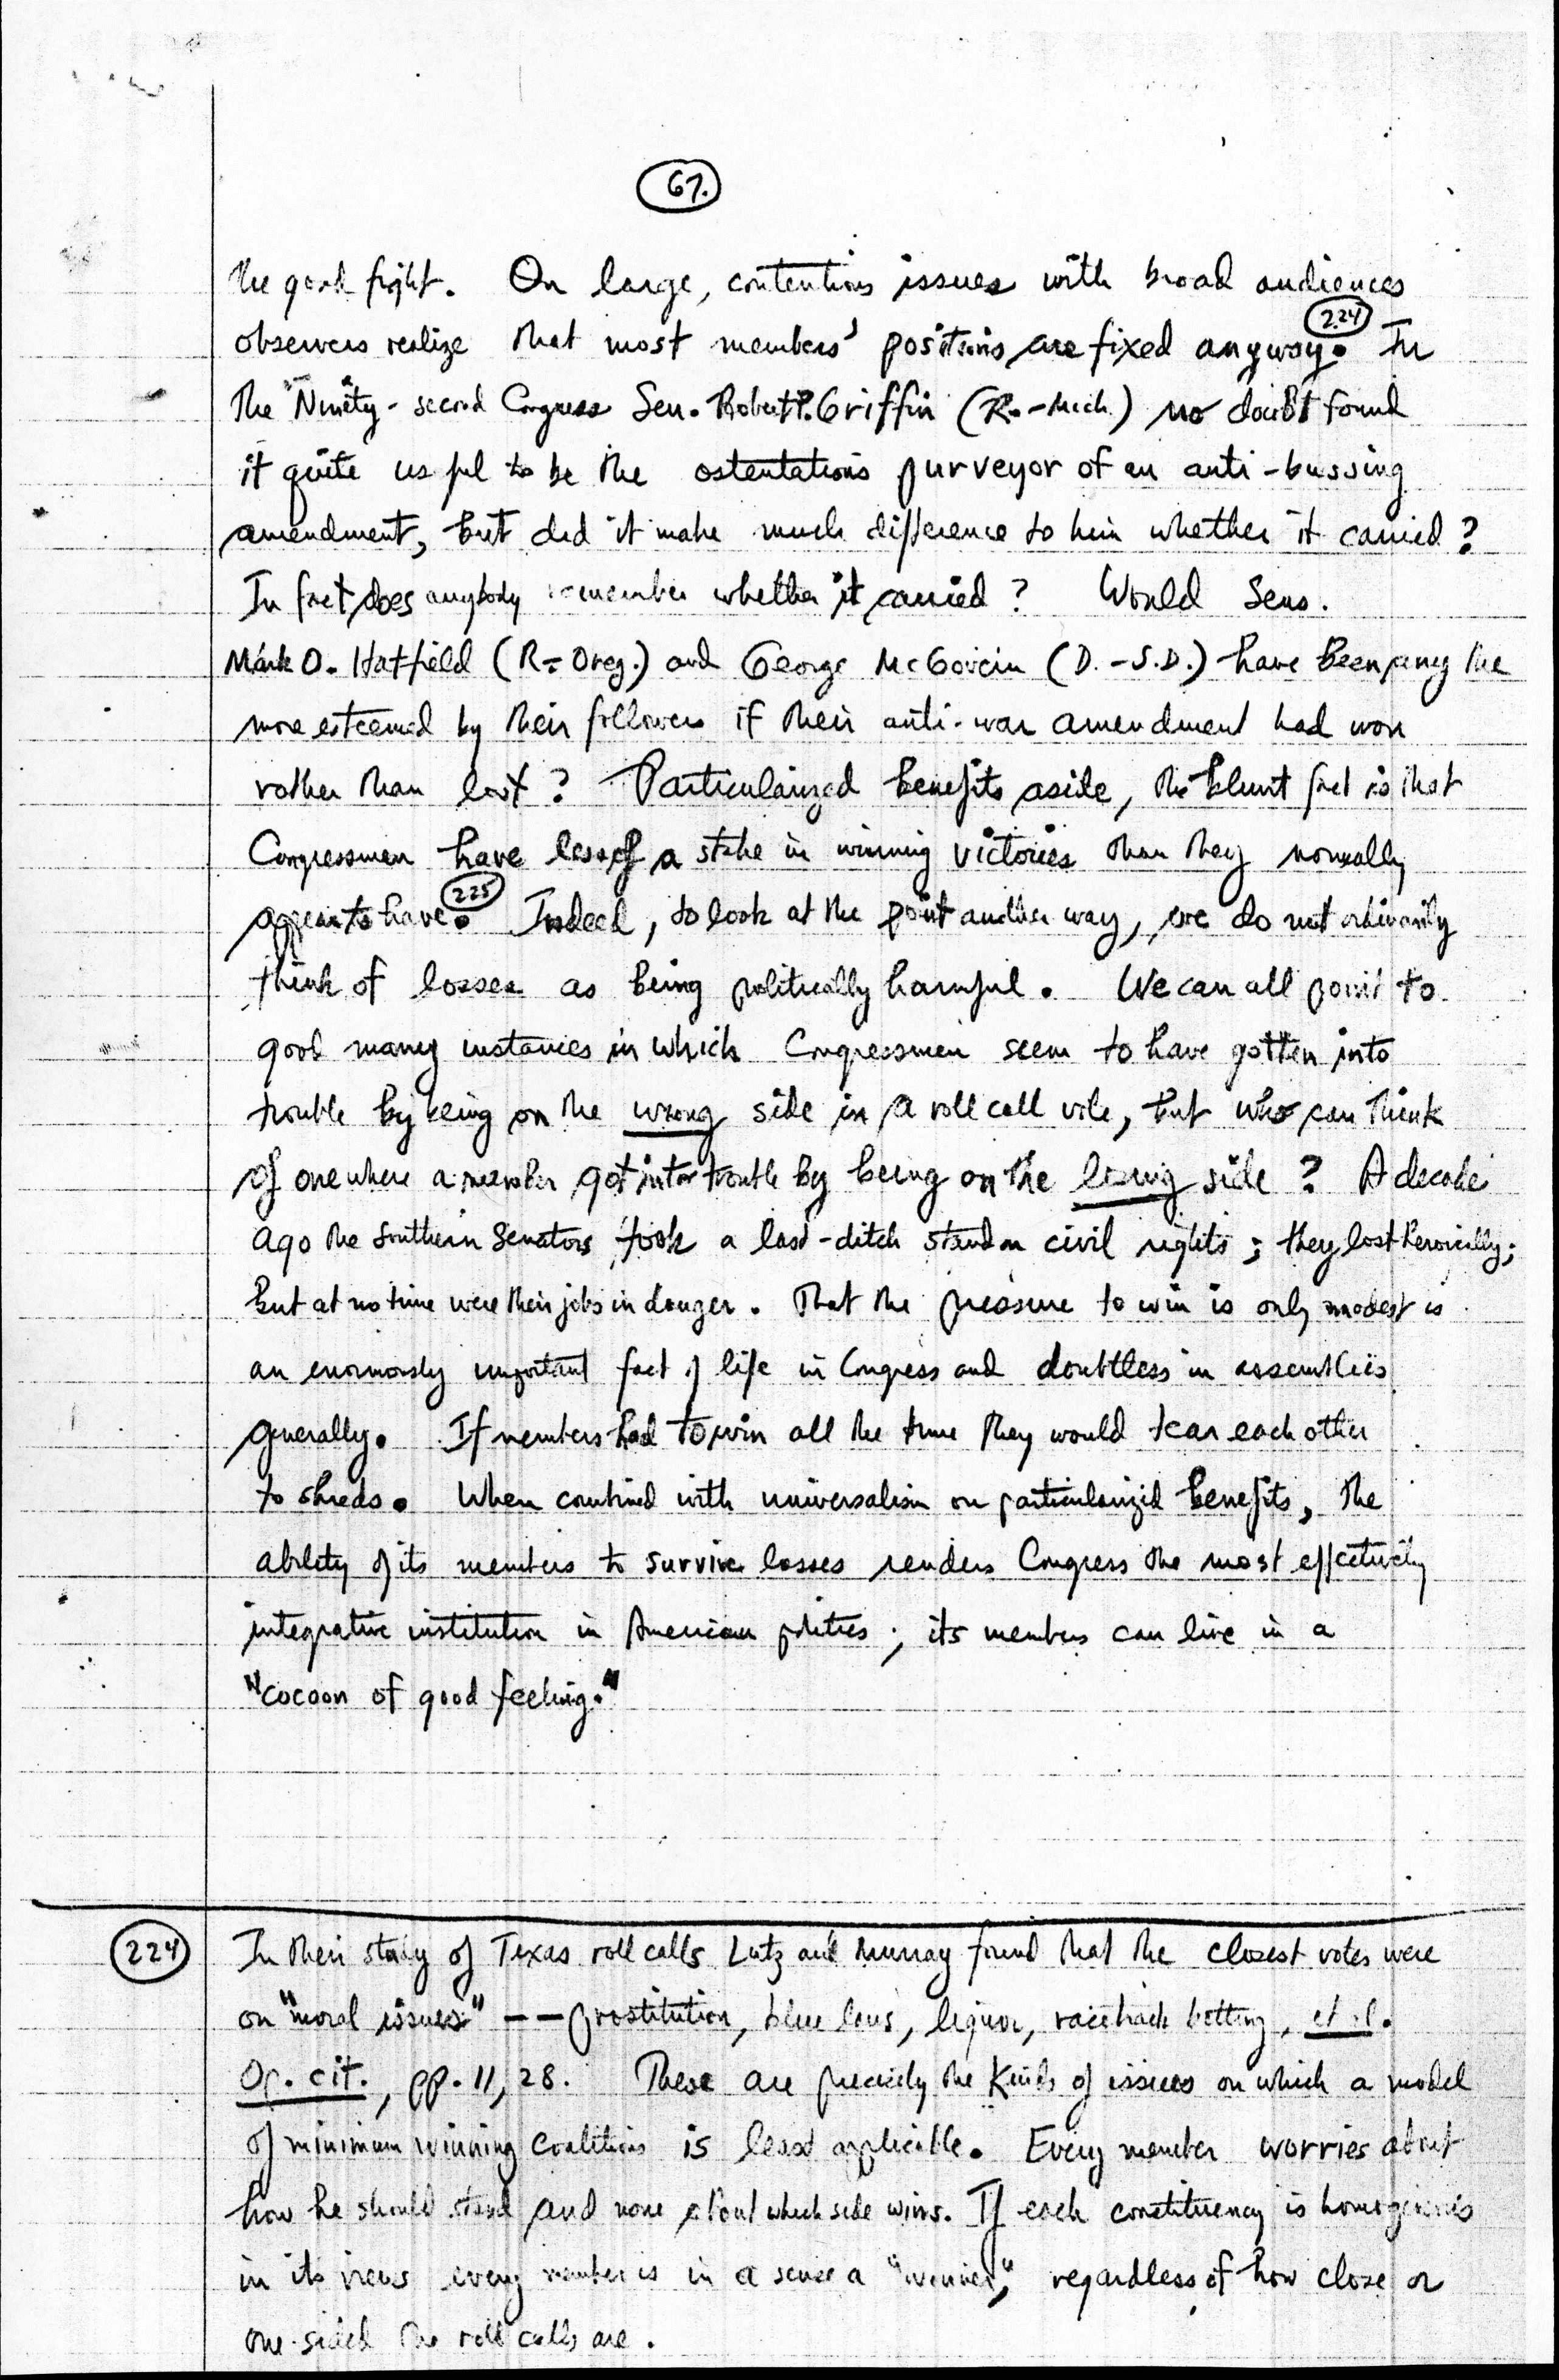 67.
the good fight. On large, contentious issues with broad audiences
observers realize that most members' positions are fixed anyway. 224 In
the Ninety-second Congress Sen. Robert P. Griffin (R.-Mich.) no doubt found
it quite useful to be the ostentatious purveyor of an anti-bussing
amendment, but did it make much difference to him whether it carried?
In fact does anybody remember whether it carried? Would Sens.
Mark O. Hatfield (R-Oreg.) and George McGovern (D.-S.D.) have been any the
more esteemed by their followers if their anti-war amendment had won
rather than lost? Particularized benefits aside, the blunt fact is that
Congressmen have less of a stake in winning victories than they normally
appear to have. 225 Indeed, to look at the point another way, we do not ordinarily
think of losses as being politically harmful. We can all point to
good many instances in which Congressmen seem to have gotten into
trouble by being on the wrong side in a roll call vote, but who can think
of one where a member got into trouble by being on the losing side? A decade
ago the Southern Senators took a last-ditch stand on civil rights; they lost heroically;
but at no time were their jobs in danger. That the pressure to win is only modest is
an enormously important fact of life in Congress and doubtless in assemblies
generally. If members had to win all the time they would tear each other
to shreds. When combined with universalism on particularized benefits, the
ability of its members to survive losses renders Congress the most effectively
integrative institution in American politics; its members can live in a
"cocoon of good feeling."
224 In their study of Texas roll calls Lutz and Murray found that the closest votes were
on "moral issues" -- prostitution, blue laws, liquor, racetrack betting, et al.
Op. cit., pp. 11, 28. These are precisely the kinds of issues on which a model
of minimum winning coalitions is least applicable. Every member worries about
how he should stand and none about which side wins. If each constituency is homogeneous
in its views every member is in a sense a "winner," regardless of how close or
one-sided the roll calls are.